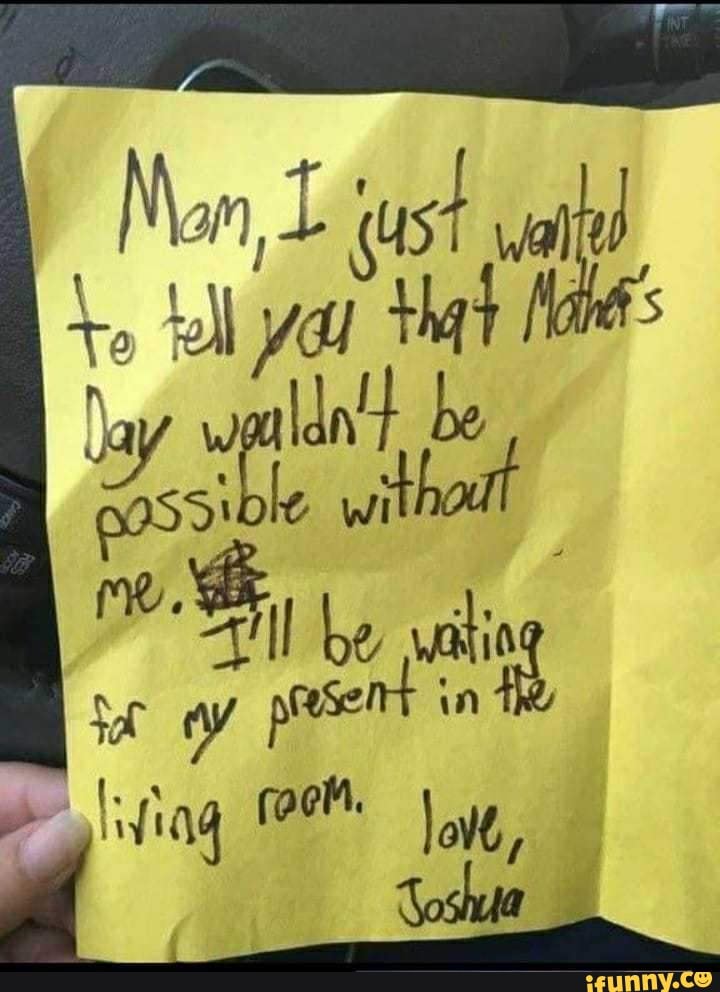 INT
Mom, I just wanted
to tell you that Mother's
Day wouldn't be
possible without
me.
I'll be waiting
for my present in the
living room.
love,
Joshua
ifunny.co